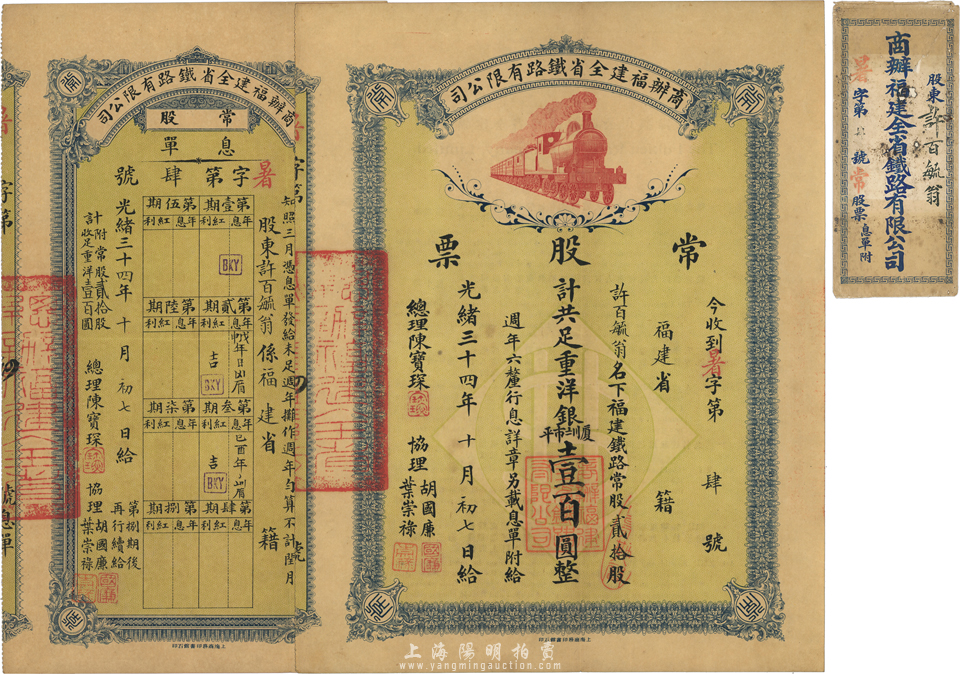 商辦福建全省鐵路有限公司
常
股
票
今收到暑字第肆號
福建省
籍
許百毓翁名下福建鐵路常股貳拾股
計共足重洋銀
廈門市平
壹百圓整
週年六釐行息詳章另載息單附給
光緒三十四年十月初七日給
總理陳寶琛
協理
胡國廉
葉崇祿
上海商務印書館石印
商辦福建全省鐵路有限公司
常股
息單
暑字第肆號
知照三月憑息單發給未足週年攤作週年勻算不計陞月
股東許百毓翁係福建省
籍
第壹期
年息紅利
BKY
第貳期
年息紅利
吉
BKY
第叁期
年息紅利
吉
BKY
第肆期
年息紅利
第伍期
年息紅利
第陸期
年息紅利
第柒期
年息紅利
第捌期
年息紅利
第捌期後
再行續給
光緒三十四年十月初七日給
計附常股貳拾股
收足重洋壹百圓
總理陳寶琛
協理
胡國廉
葉崇祿
上海商務印書館石印
股東許百毓翁
商辦福建全省鐵路有限公司
暑字第
號常股票息單附
上海陽明拍賣
www.yangmingauction.com